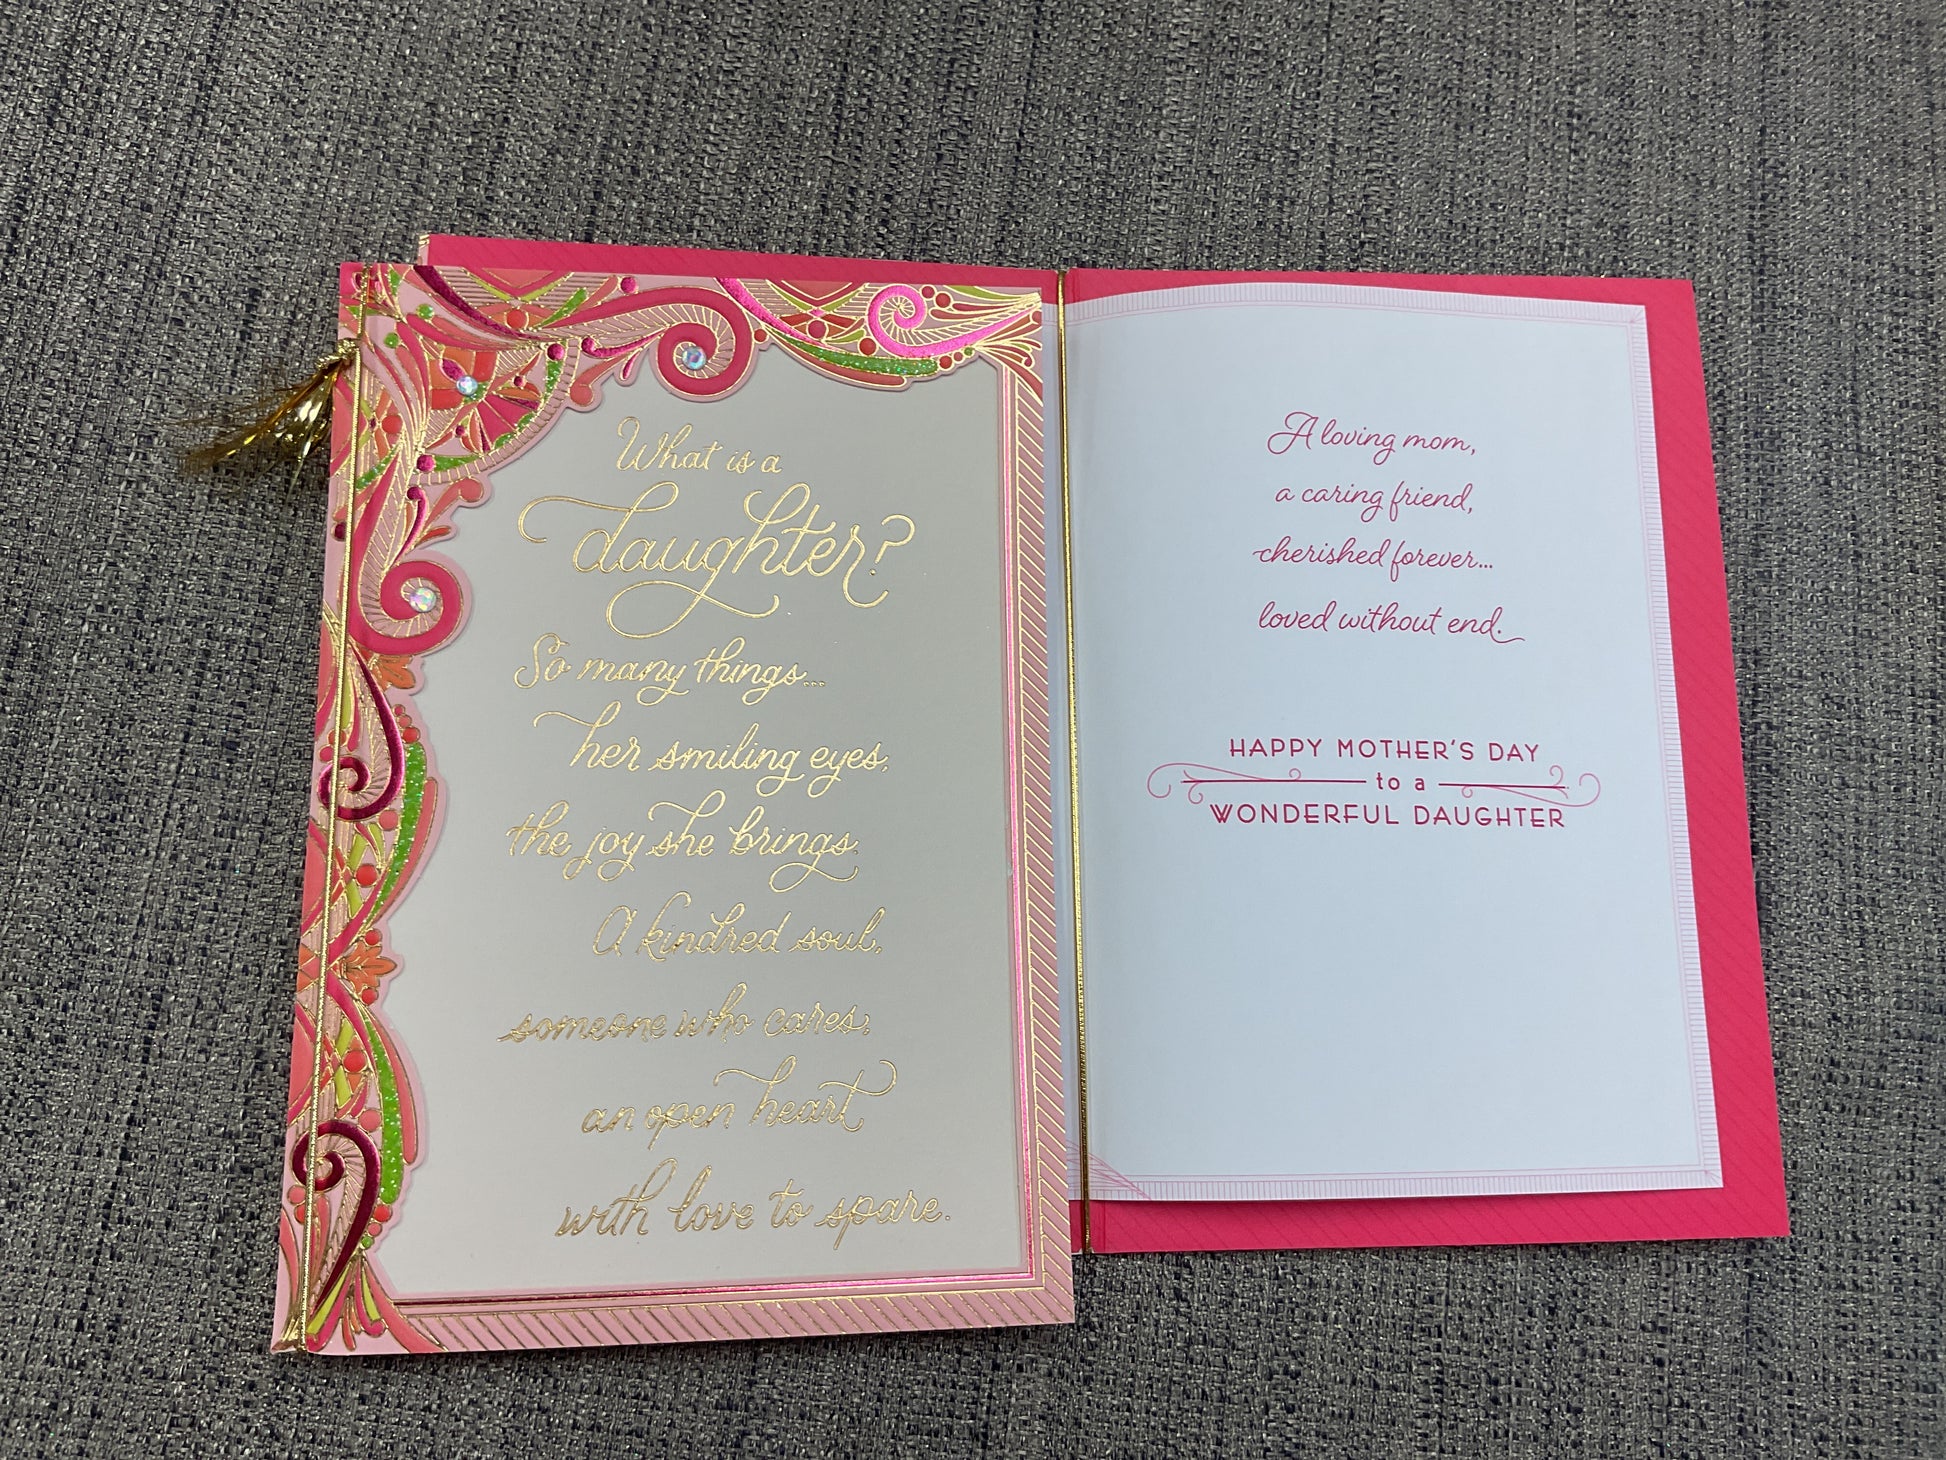 What is a
daughter?
So many things...
her smiling eyes,
the joy she brings.
A kindred soul,
someone who cares,
an open heart
with love to spare.
A loving mom,
a caring friend,
cherished forever...
loved without end.
HAPPY MOTHER'S DAY
to a
WONDERFUL DAUGHTER